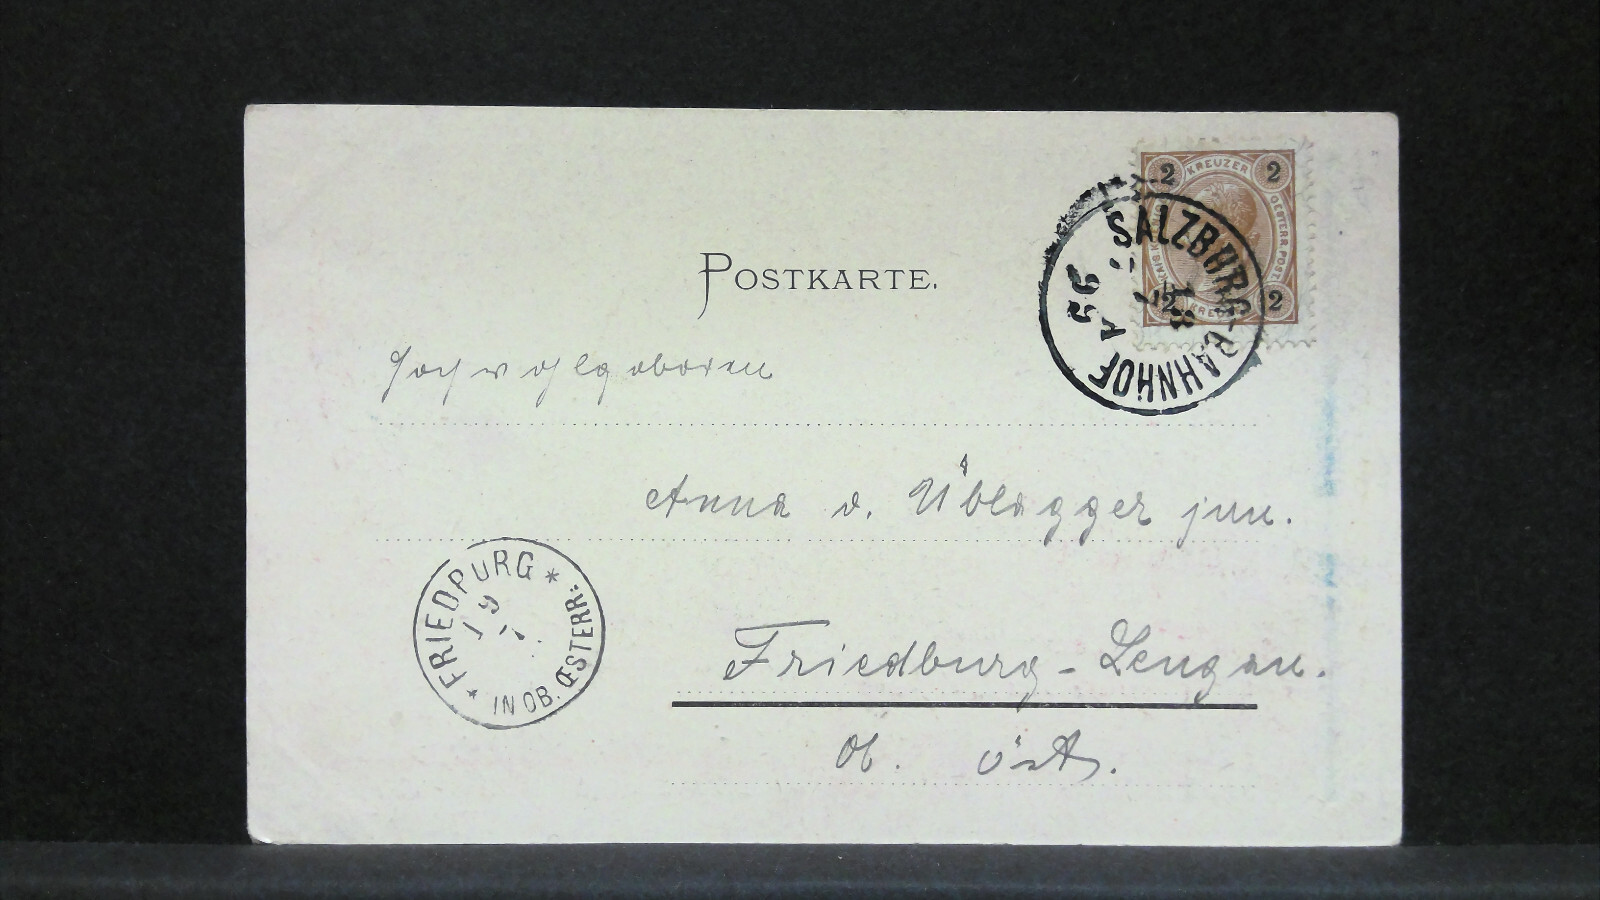 POSTKARTE.
2 KREUZER 2
KAIS. KÖNIGL. OESTERR. POST
2 KREUZER 2
SALZBURG-BAHNHOF
18
7
99
A
Hochwohlgeboren
Anna v. Üblagger jun.
Friedburg-Lengau.
Ob. Öst.
* FRIEDBURG *
19
7
IN OB. ŒSTERR: